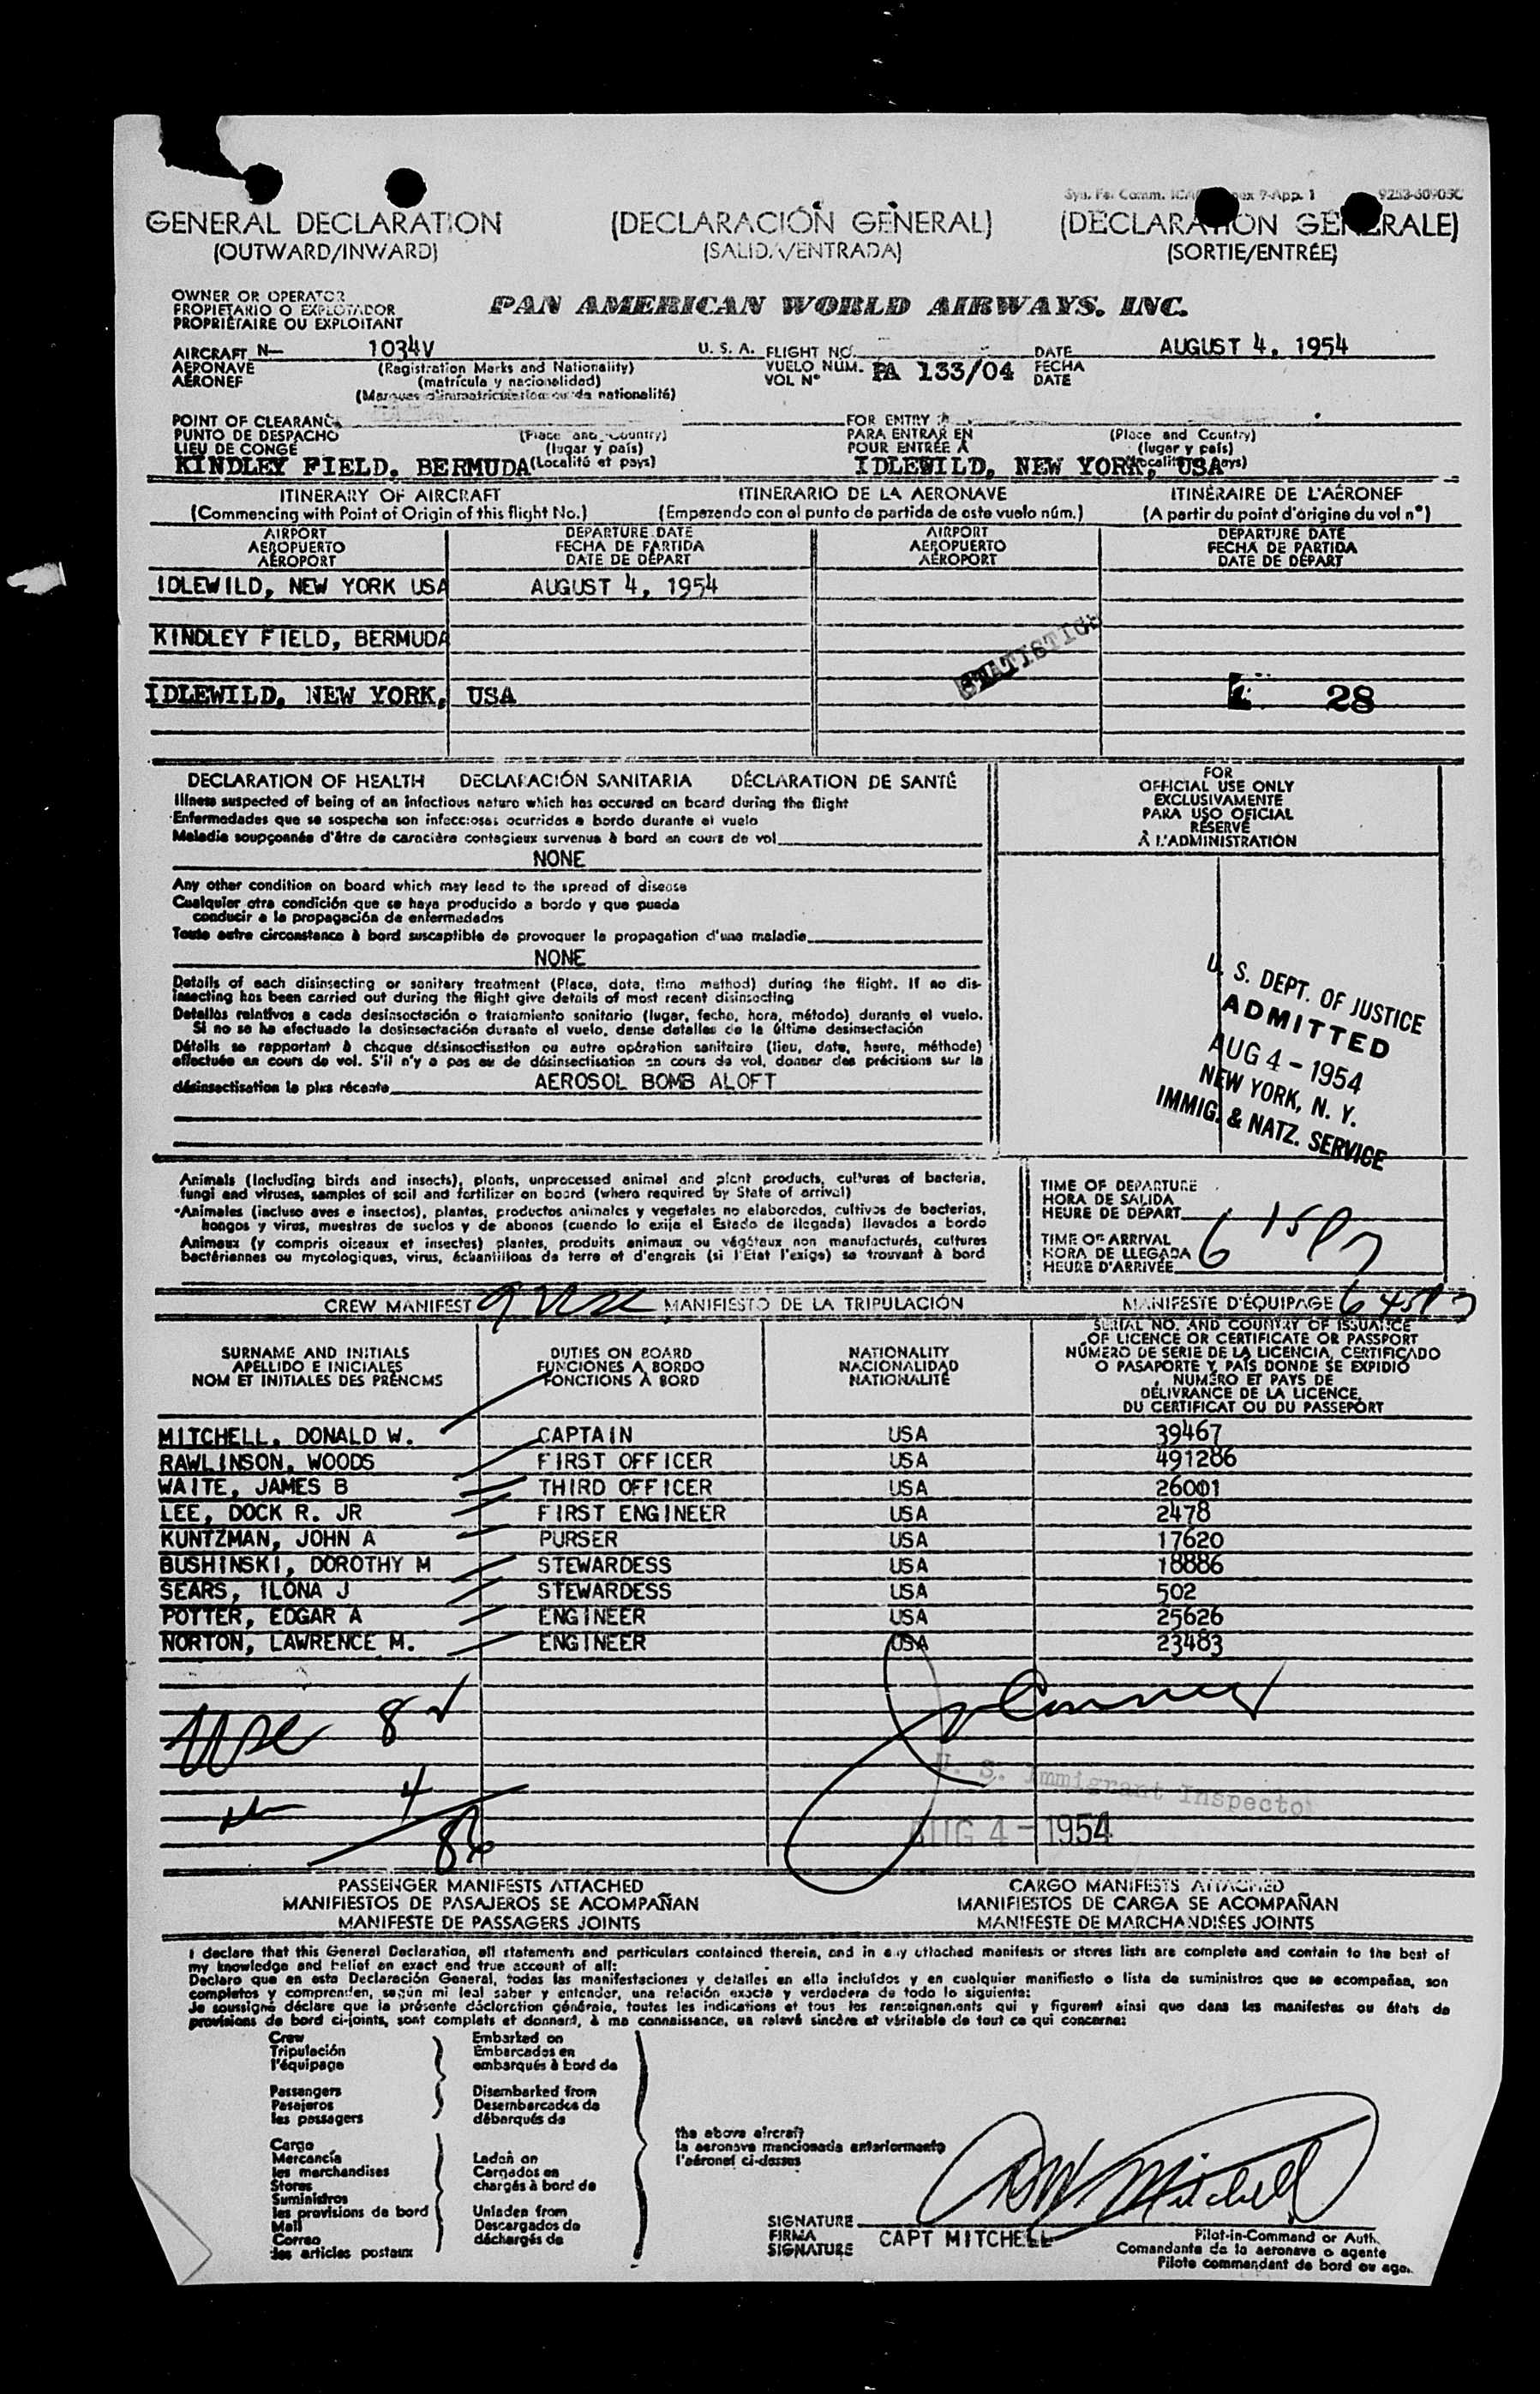 Sys. Fo. Comm. 9-App. 1 9253-60905C
GENERAL DECLARATION (DECLARACIÓN GENERAL) (DECLARATION GENERALE)
(OUTWARD/INWARD) (SALIDA/ENTRADA) (SORTIE/ENTRÉE)
OWNER OR OPERATOR
PROPIETARIO O EXPLOTADOR
PROPRIÉTAIRE OU EXPLOITANT
PAN AMERICAN WORLD AIRWAYS, INC.
AIRCRAFT N— 1034V U. S. A. FLIGHT NO. DATE AUGUST 4, 1954
AERONAVE (Registration Marks and Nationality) VUELO NUM. PA 133/04 FECHA
AÉRONEF (matrícula y nacionalidad) VOL N° DATE
(Marques d'immatriculation ou de nationalité)
POINT OF CLEARANCE FOR ENTRY
PUNTO DE DESPACHO (Place and Country) PARA ENTRAR EN (Place and Country)
LIEU DE CONGÉ (lugar y país) POUR ENTRÉE A (lugar y país)
KINDLEY FIELD, BERMUDA (Localité et pays) IDLEWILD, NEW YORK, USA
ITINERARY OF AIRCRAFT ITINERARIO DE LA AERONAVE ITINÉRAIRE DE L'AÉRONEF
(Commencing with Point of Origin of this flight No.) (Empezendo con el punto de partida de este vuelo núm.) (A partir du point d'origine du vol n°)
AIRPORT DEPARTURE DATE AIRPORT DEPARTURE DATE
AEROPUERTO FECHA DE PARTIDA AEROPUERTO FECHA DE PARTIDA
AÉROPORT DATE DE DÉPART AÉROPORT DATE DE DÉPART
IDLEWILD, NEW YORK USA AUGUST 4, 1954
KINDLEY FIELD, BERMUDA
STATISTICS
IDLEWILD, NEW YORK, USA 28
DECLARATION OF HEALTH DECLARACIÓN SANITARIA DÉCLARATION DE SANTÉ
Illness suspected of being of an infectious nature which has occured on board during the flight
Enfermedades que se sospecha son infecciosas ocurridas a bordo durante el vuelo
Maladie soupçonnée d'être de caractère contagieux survenue à bord en cours de vol
NONE
Any other condition on board which may lead to the spread of disease
Cualquier otra condición que se haya producido a bordo y que pueda
conducir a la propagación de enfermedades
Toute autre circonstance à bord susceptible de provoquer la propagation d'une maladie
NONE
Details of each disinsecting or sanitary treatment (Place, date, time method) during the flight. If no dis-
insecting has been carried out during the flight give details of most recent disinsecting
Detalles relativos a cada desinsectación o tratamiento sanitario (lugar, fecha, hora, método) durante el vuelo.
Si no se ha efectuado la desinsectación durante el vuelo, dense detalles de la última desinsectación
Détails se rapportant à chaque désinsectisation ou autre opération sanitaire (lieu, date, heure, méthode)
effectuée en cours de vol. S'il n'y a pas eu de désinsectisation en cours de vol, donner des précisions sur la
désinsectisation la plus récente AEROSOL BOMB ALOFT
FOR
OFFICIAL USE ONLY
EXCLUSIVAMENTE
PARA USO OFICIAL
RÉSERVÉ
À L'ADMINISTRATION
U. S. DEPT. OF JUSTICE
ADMITTED
AUG 4 – 1954
NEW YORK, N. Y.
IMMIG. & NATZ. SERVICE
Animals (Including birds and insects), plants, unprocessed animal and plant products, cultures of bacteria,
fungi and viruses, samples of soil and fertilizer on board (where required by State of arrival)
Animales (incluso aves e insectos), plantas, productos animales y vegetales no elaborados, cultivos de bacterias,
hongos y virus, muestras de suelos y de abonos (cuando lo exija el Estado de llegada) llevados a bordo
Animaux (y compris oiseaux et insectes) plantes, produits animaux ou végétaux non manufacturés, cultures
bactériennes ou mycologiques, virus, échantillons de terre et d'engrais (si l'Etat l'exige) se trouvant à bord
TIME OF DEPARTURE
HORA DE SALIDA
HEURE DE DÉPART
TIME OF ARRIVAL
HORA DE LLEGADA
HEURE D'ARRIVÉE
6 15P
CREW MANIFEST MANIFIESTO DE LA TRIPULACIÓN MANIFESTE D'ÉQUIPAGE 6 45P
SURNAME AND INITIALS
APELLIDO E INICIALES
NOM ET INITIALES DES PRÉNOMS
DUTIES ON BOARD
FUNCIONES A BORDO
FONCTIONS À BORD
NATIONALITY
NACIONALIDAD
NATIONALITÉ
SERIAL NO. AND COUNTRY OF ISSUANCE
OF LICENCE OR CERTIFICATE OR PASSPORT
NÚMERO DE SERIE DE LA LICENCIA, CERTIFICADO
O PASAPORTE Y PAÍS DONDE SE EXPIDIÓ
NUMÉRO ET PAYS DE
DÉLIVRANCE DE LA LICENCE,
DU CERTIFICAT OU DU PASSEPORT
MITCHELL, DONALD W. CAPTAIN USA 39467
RAWLINSON, WOODS FIRST OFFICER USA 491286
WAITE, JAMES B THIRD OFFICER USA 26001
LEE, DOCK R. JR FIRST ENGINEER USA 2478
KUNTZMAN, JOHN A PURSER USA 17620
BUSHINSKI, DOROTHY M STEWARDESS USA 18886
SEARS, ILONA J STEWARDESS USA 502
POTTER, EDGAR A ENGINEER USA 25626
NORTON, LAWRENCE M. ENGINEER USA 23483
4
U. S. Immigrant Inspector
AUG 4 – 1954
PASSENGER MANIFESTS ATTACHED CARGO MANIFESTS ATTACHED
MANIFIESTOS DE PASAJEROS SE ACOMPAÑAN MANIFIESTOS DE CARGA SE ACOMPAÑAN
MANIFESTE DE PASSAGERS JOINTS MANIFESTE DE MARCHANDISES JOINTS
I declare that this General Declaration, all statements and particulars contained therein, and in any attached manifests or stores lists are complete and contain to the best of
my knowledge and belief an exact and true account of all:
Declaro que en esta Declaración General, todas las manifestaciones y detalles en ella incluídos y en cualquier manifiesto o lista de suministros que se acompañan, son
completos y comprenden, según mi leal saber y entender, una relación exacta y verdadera de todo lo siguiente:
Je soussigné déclare que la présente déclaration générale, toutes les indications et tous les renseignements qui y figurent ainsi que dans les manifestes ou états de
provisions de bord ci-joints, sont complets et donnent, à ma connaissance, un relevé sincère et véritable de tout ce qui concerne:
Crew
Tripulación
l'équipage
Passengers
Pasajeros
les passagers
Embarked on
Embarcados en
embarqués à bord de
Disembarked from
Desembarcados de
débarqués de
Cargo
Mercancía
les marchandises
Stores
Suministros
les provisions de bord
Mail
Correo
les articles postaux
Laden on
Cargados en
chargés à bord de
Unladen from
Descargados de
déchargés de
the above aircraft
la aeronave mencionada anteriormente
l'aéronef ci-dessus
DW Mitchell
SIGNATURE
FIRMA CAPT MITCHELL
SIGNATURE
Pilot-in-Command or Auth.
Comandante de la aeronave o agente
Pilote commandant de bord ou age.